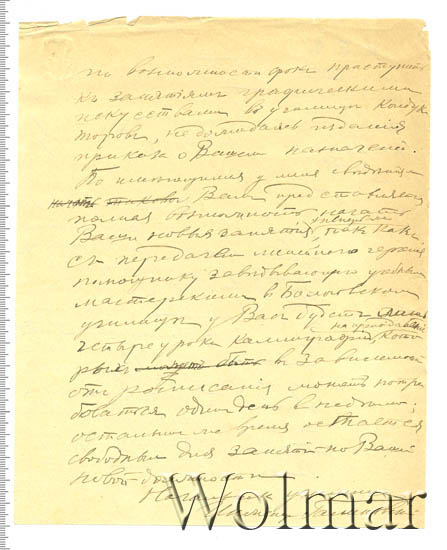 по возможности срокъ приступить
къ занятiямъ графическими
искусствами въ училищѣ Кондук
торовъ, не дожидаясь изданiя
приказа о Вашем назначенiи.
По имеющимся у меня сведенiямъ
Вамъ представляется
полная возможность начать
Ваши новыя занятiя, такъ какъ
съ передачей черченiя
помощнику завѣдывающаго учебными
мастерскими въ
училищѣ у Васъ будетъ лишь
четыре урока каллиграфiи, кото
рые въ зависимости
отъ росписанiя можетъ потре
боваться одинъ день в недѣлю;
остальное же время остается
свободнымъ для занятiй по Вашей
новой должности.
Wolmar